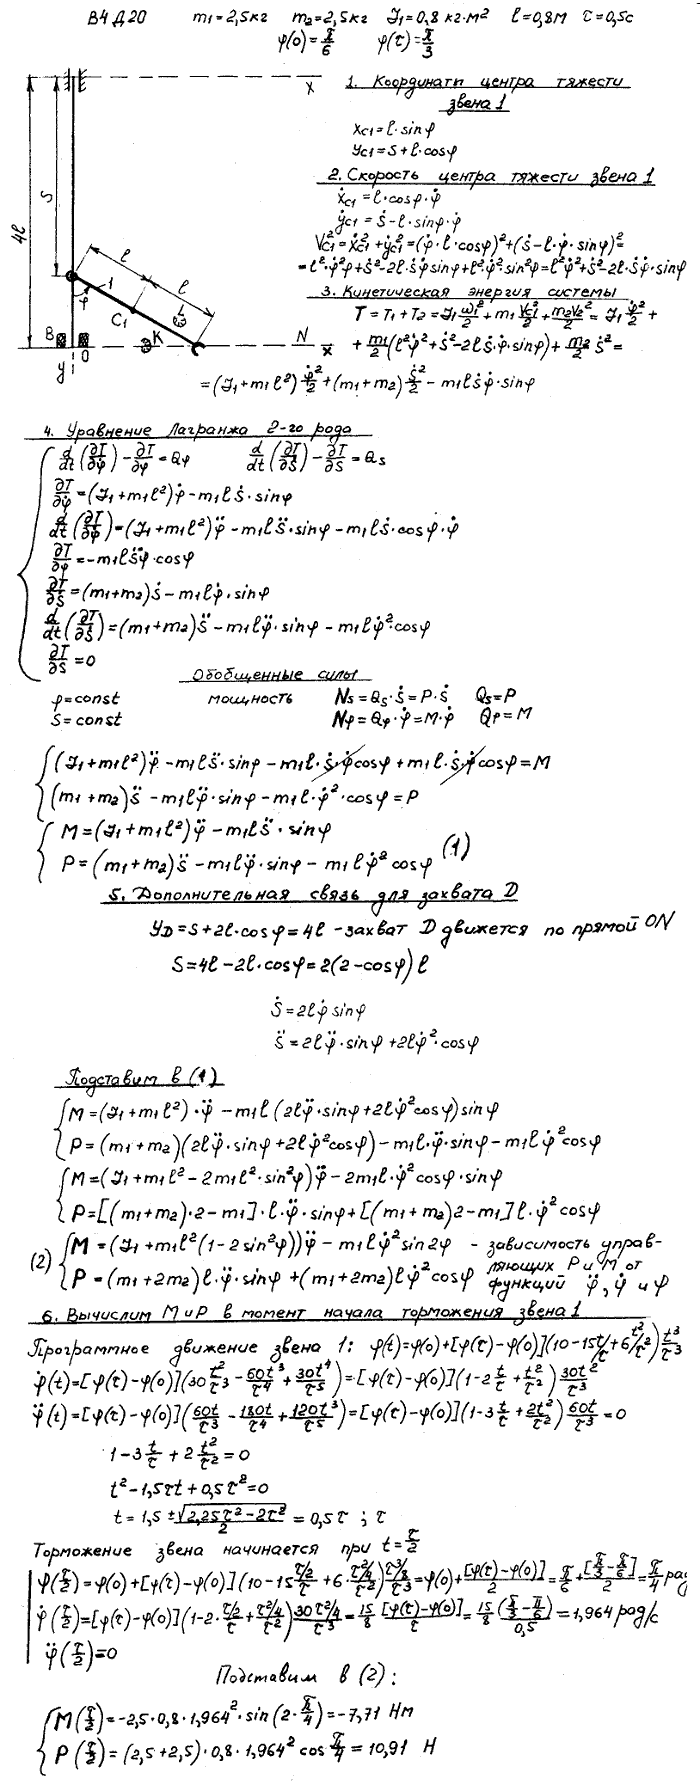 В4 Д20 m1=2,5кг m2=2,5кг J1=0,8 кг·м² l=0,8м τ=0,5с
φ(0)=π/6 φ(τ)=π/3
1. Координаты центра тяжести
звена 1
xc1=l·sinφ
yc1=s+l·cosφ
2. Скорость центра тяжести звена 1
ẋc1=l·cosφ·φ̇
ẏc1=ṡ-l·sinφ·φ̇
Vc1²=ẋc1²+ẏc1²=(φ̇·l·cosφ)²+(ṡ-l·φ̇·sinφ)²=
=l²·φ̇²φ+ṡ²-2l·ṡφ̇sinφ+l²·φ̇²·sin²φ=l²φ̇²+ṡ²-2l·ṡφ̇·sinφ
3. Кинетическая энергия системы
T=T1+T2=J1 ω1²/2+m1 Vc1²/2+m2V2²/2=J1 φ̇²/2+
+m1/2(l²φ̇²+ṡ²-2lṡ·φ̇·sinφ)+m2/2 ṡ²=
=(J1+m1l²)φ̇²/2+(m1+m2)ṡ²/2-m1lṡφ̇·sinφ
x
4l
S
l
l
φ
1
C1
L
K
B
O
N
x
y
4. Уравнение Лагранжа 2-го рода
d/dt(∂T/∂φ̇)-∂T/∂φ=Qφ d/dt(∂T/∂ṡ)-∂T/∂s=Qs
∂T/∂φ̇=(J1+m1l²)φ̇-m1lṡ·sinφ
d/dt(∂T/∂φ̇)=(J1+m1l²)φ̈-m1ls̈·sinφ-m1lṡ·cosφ·φ̇
∂T/∂φ=-m1lṡφ̇·cosφ
∂T/∂ṡ=(m1+m2)ṡ-m1lφ̇·sinφ
d/dt(∂T/∂ṡ)=(m1+m2)s̈-m1lφ̈·sinφ-m1lφ̇²·cosφ
∂T/∂s=0
Обобщенные силы
φ=const мощность Ns=Qs·ṡ=P·ṡ Qs=P
S=const Nφ=Qφ·φ̇=M·φ̇ Qφ=M
(J1+m1l²)φ̈-m1ls̈·sinφ-m1l·ṡ·φ̇cosφ+m1l·ṡ·φ̇cosφ=M
(m1+m2)s̈-m1lφ̈·sinφ-m1l·φ̇²·cosφ=P
M=(J1+m1l²)φ̈-m1ls̈·sinφ
P=(m1+m2)s̈-m1lφ̈·sinφ-m1lφ̇²cosφ (1)
5. Дополнительная связь для захвата D
yD=s+2l·cosφ=4l -захват D движется по прямой ON
S=4l-2l·cosφ=2(2-cosφ)l
ṡ=2lφ̇sinφ
s̈=2lφ̈·sinφ+2lφ̇²·cosφ
Подставим в (1)
M=(J1+m1l²)·φ̈-m1l(2lφ̈·sinφ+2lφ̇²cosφ)sinφ
P=(m1+m2)(2lφ̈·sinφ+2lφ̇²cosφ)-m1l·φ̈·sinφ-m1lφ̇²cosφ
M=(J1+m1l²-2m1l²·sin²φ)φ̈-2m1l·φ̇²cosφ·sinφ
P=[(m1+m2)·2-m1]·l·φ̈·sinφ+[(m1+m2)2-m1]l·φ̇²cosφ
(2) M=(J1+m1l²(1-2sin²φ))φ̈-m1lφ̇²sin2φ - зависимость управ-
P=(m1+2m2)l·φ̈·sinφ+(m1+2m2)lφ̇²cosφ ляющих P и M от
функций φ̈, φ̇ и φ
6. Вычислим M и P в момент начала торможения звена 1
Программное движение звена 1: φ(t)=φ(0)+[φ(τ)-φ(0)](10-15t/τ+6t²/τ²)t³/τ³
φ̇(t)=[φ(τ)-φ(0)](30t²/τ³-60t³/τ⁴+30t⁴/τ⁵)=[φ(τ)-φ(0)](1-2t/τ+t²/τ²)30t²/τ³
φ̈(t)=[φ(τ)-φ(0)](60t/τ³-180t²/τ⁴+120t³/τ⁵)=[φ(τ)-φ(0)](1-3t/τ+2t²/τ²)60t/τ³=0
1-3t/τ+2t²/τ²=0
t²-1,5τt+0,5τ²=0
t=1,5±√2,25τ²-2τ²/2=0,5τ ; τ
Торможение звена начинается при t=τ/2
φ(τ/2)=φ(0)+[φ(τ)-φ(0)](10-15τ/2/τ+6·τ²/4/τ²)τ³/8/τ³=φ(0)+[φ(τ)-φ(0)]/2=π/6+[π/3-π/6]/2=π/4 рад
φ̇(τ/2)=[φ(τ)-φ(0)](1-2·τ/2/τ+τ²/4/τ²)30τ²/4/τ³=15/8 [φ(τ)-φ(0)]/τ=15/8 (π/3-π/6)/0,5=1,964 рад/с
φ̈(τ/2)=0
Подставим в (2):
M(τ/2)=-2,5·0,8·1,964²·sin(2·π/4)=-7,71 Нм
P(τ/2)=(2,5+2,5)·0,8·1,964²cosπ/4=10,91 Н